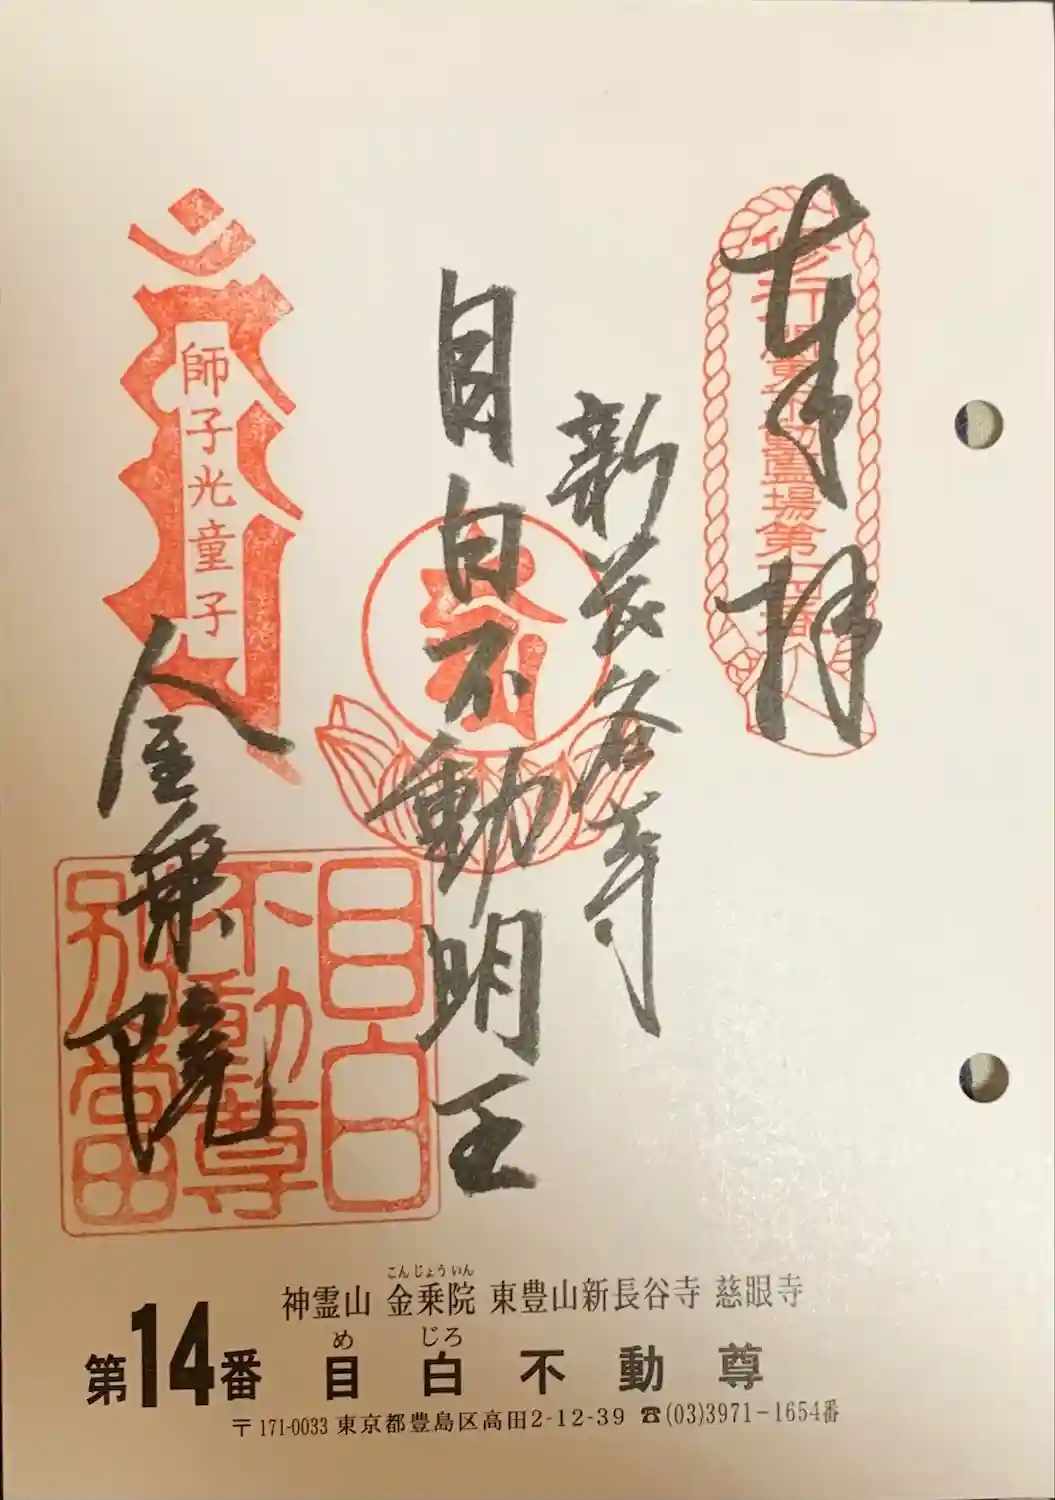 奉拝
修行門関東不動霊場第十四番
新長谷寺
目白不動明王
師子光童子
金乗院
目白
不動尊
別當
こんじょういん
神霊山 金乗院 東豊山新長谷寺 慈眼寺
め じろ
第14番 目白不動尊
〒171-0033 東京都豊島区高田2-12-39 ☎(03)3971-1654番